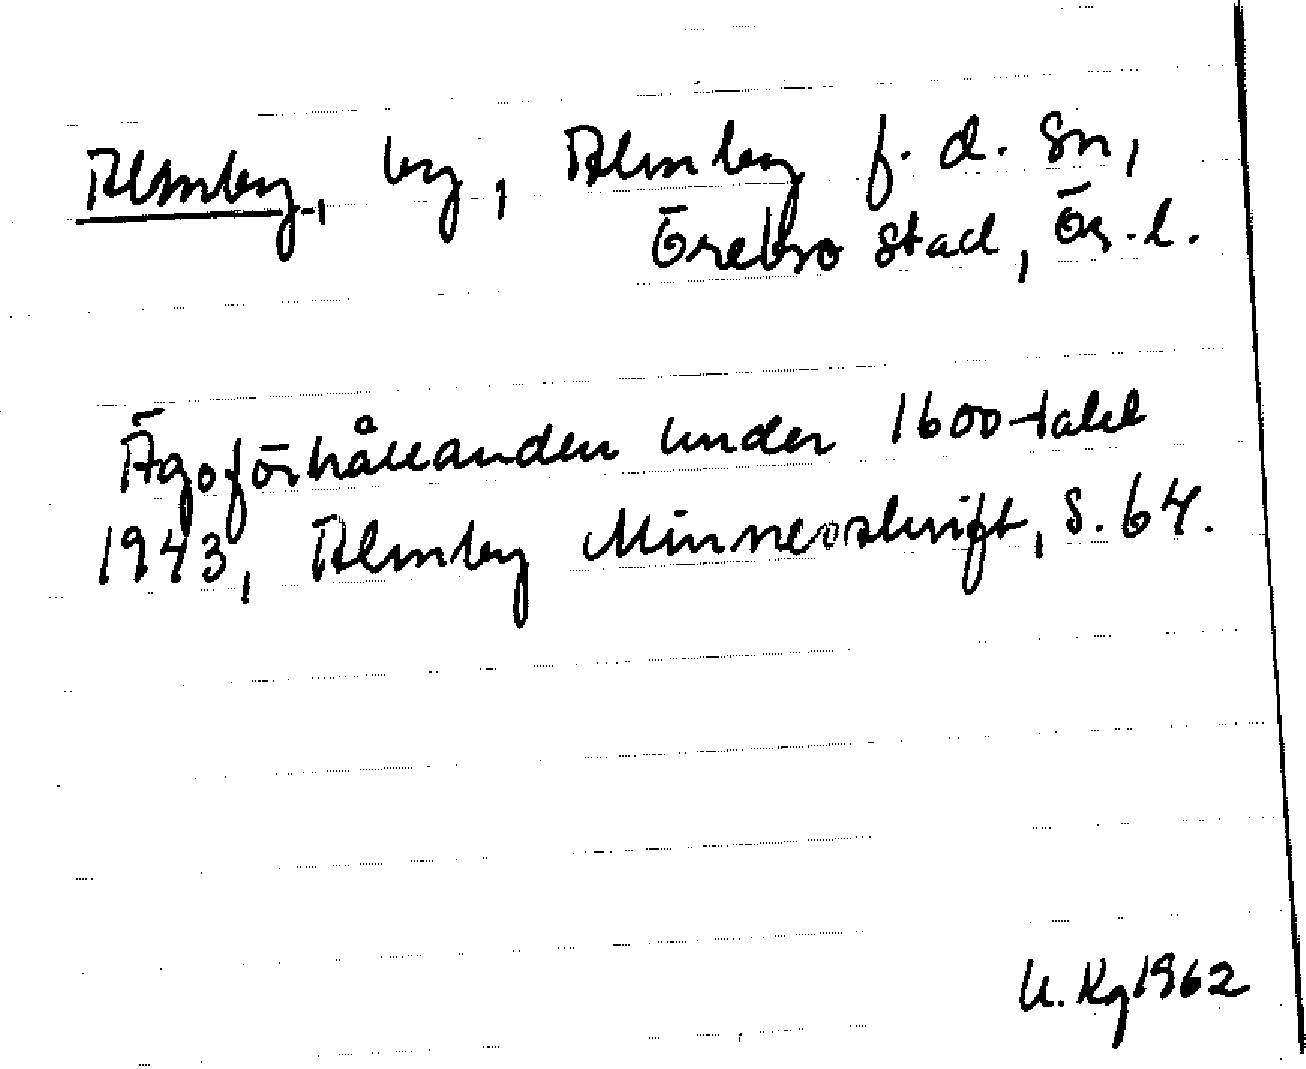 Almby, by, Almby f. d. sn,
Örebro stad, Ör. l.
Ägoförhållanden under 1600-talet
1943, Almby Minnesskrift, s. 64.
U. Kg 1962